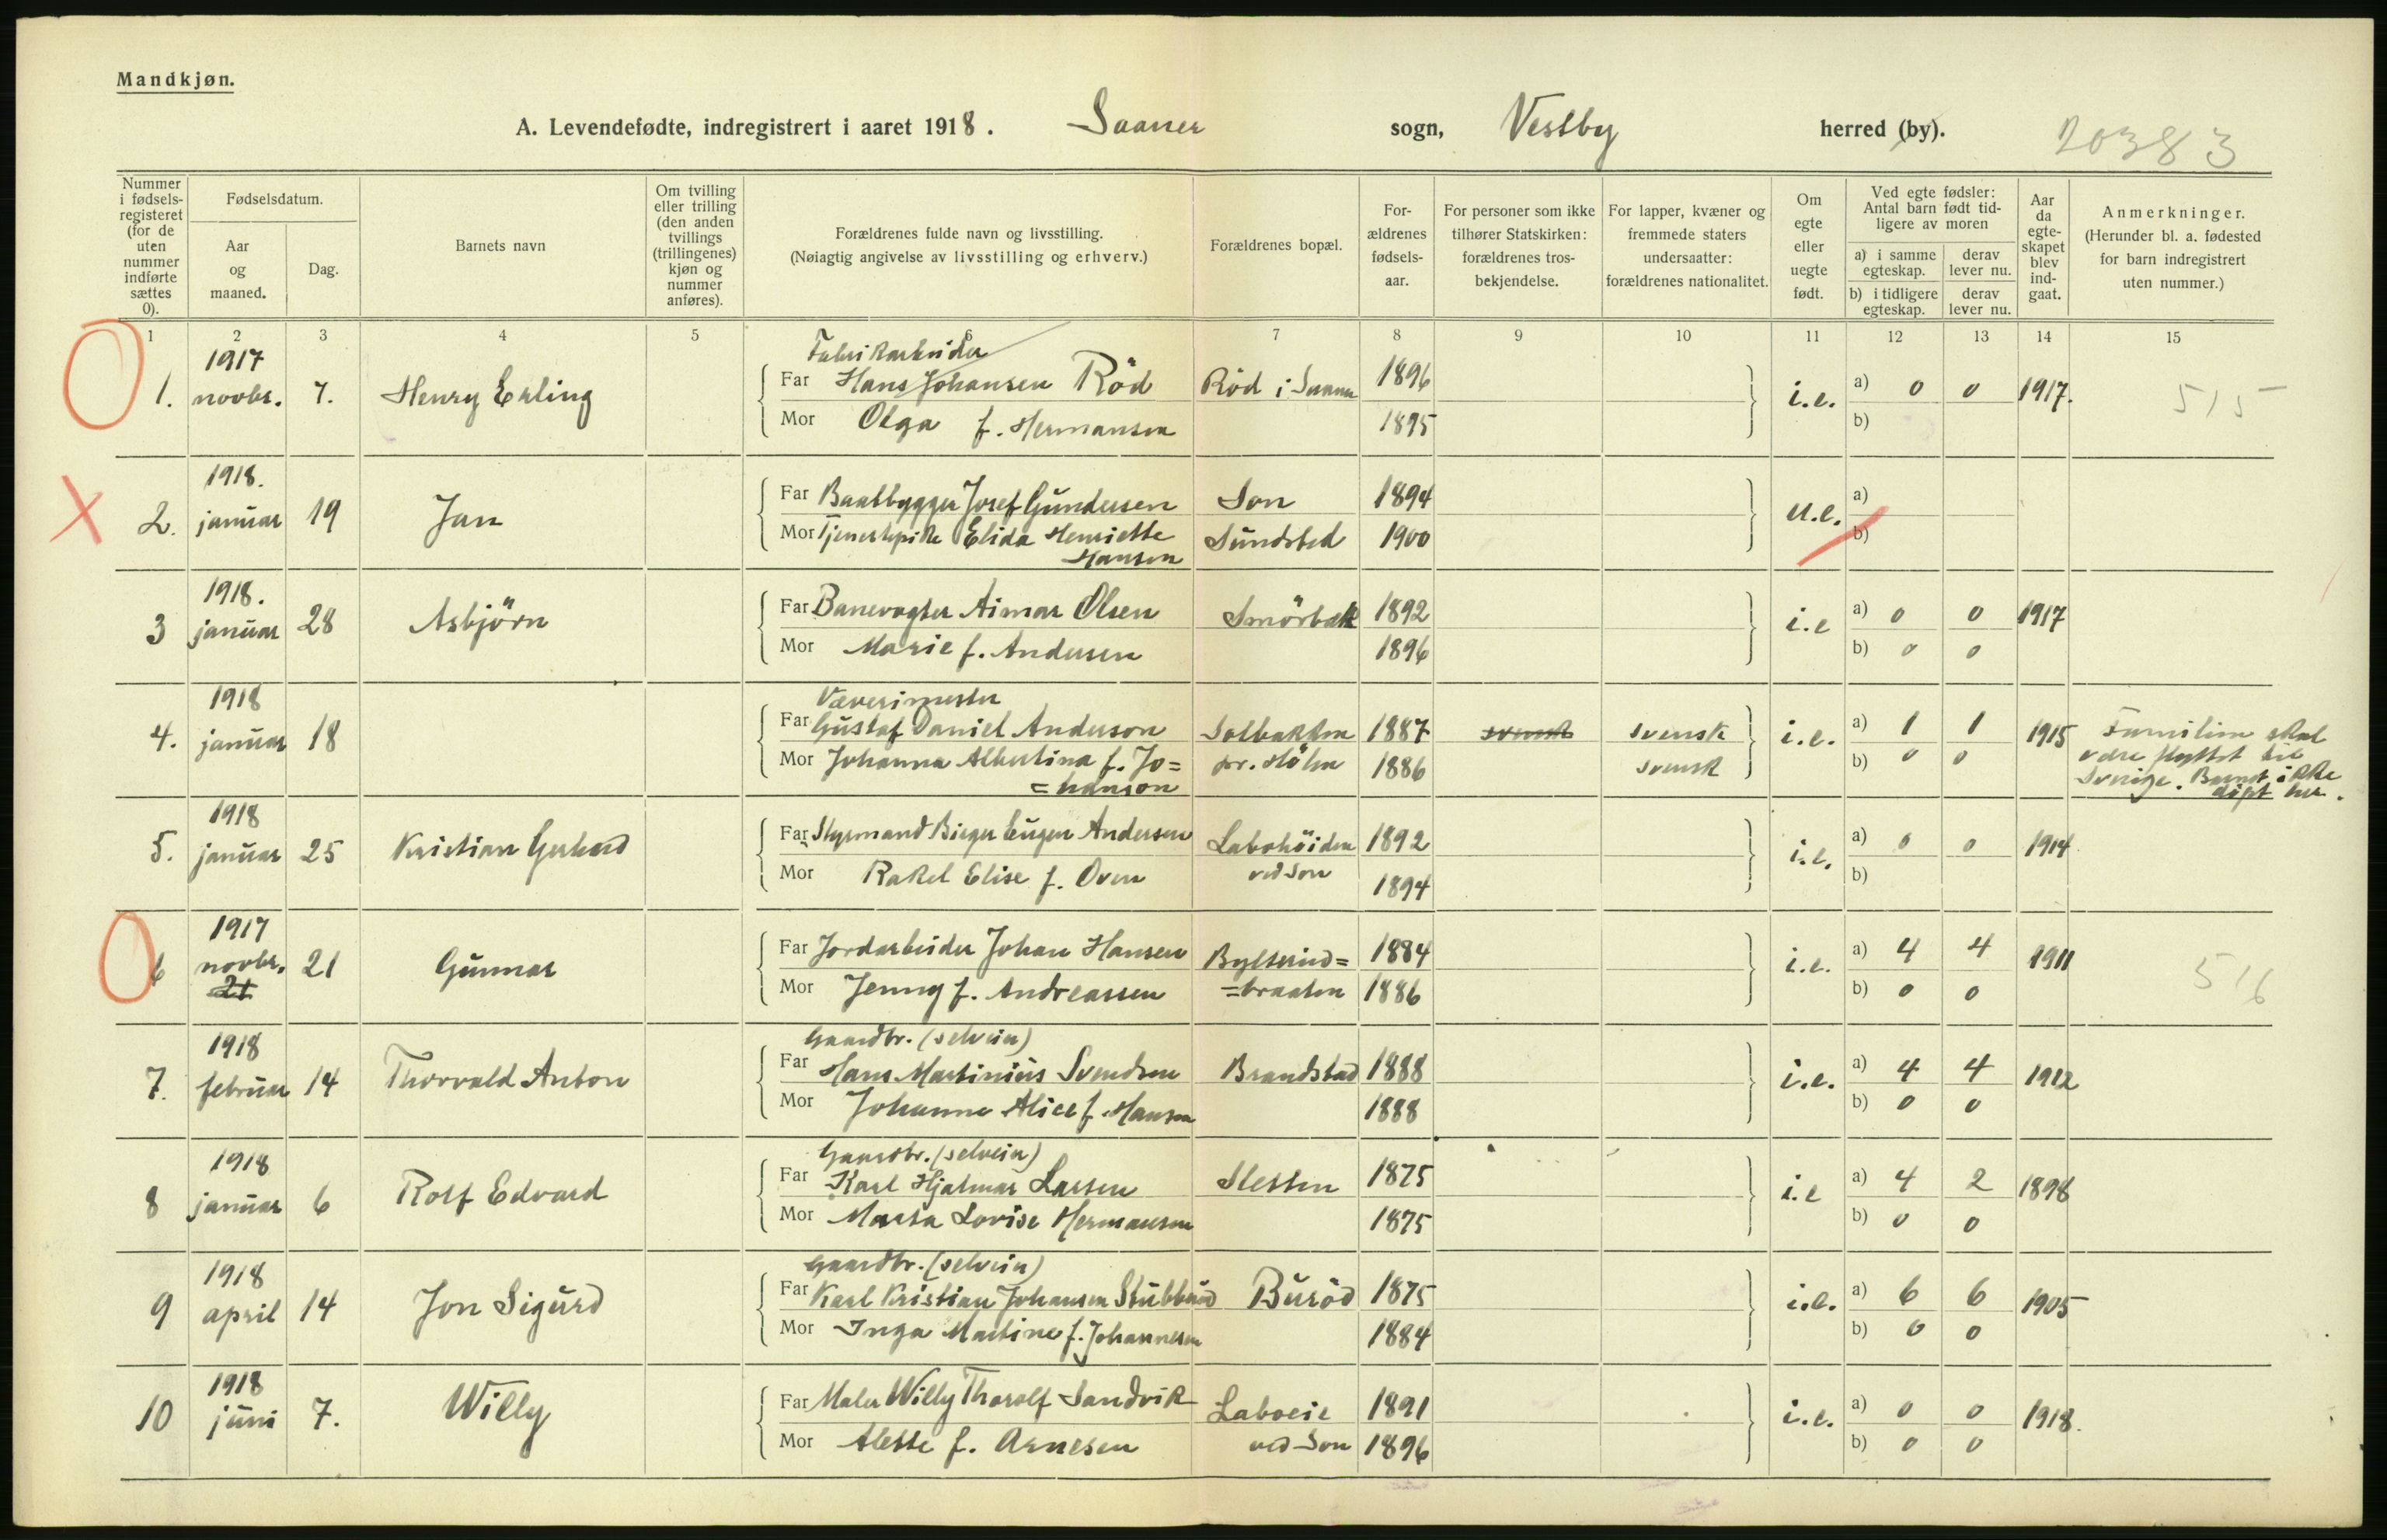 Mandkjøn.
A. Levendefødte, indregistrert i aaret 1918. Saaner sogn, Vestby herred (by). 20383
Nummer i fødsels-registeret (for de uten nummer indførte sættes 0).
Fødselsdatum.
Aar og maaned.
Dag.
Barnets navn
Om tvilling eller trilling (den anden tvillings (trillingenes) kjøn og nummer anføres).
Forældrenes fulde navn og livsstilling.
(Nøiagtig angivelse av livsstilling og erhverv.)
Forældrenes bopæl.
For-ældrenes fødsels-aar.
For personer som ikke tilhører Statskirken: forældrenes tros-bekjendelse.
For lapper, kvæner og fremmede staters undersaatter: forældrenes nationalitet.
Om egte eller uegte født.
Ved egte fødsler: Antal barn født tid-ligere av moren
a) i samme egteskap. derav lever nu.
b) i tidligere egteskap. derav lever nu.
Aar da egte-skapet blev ind-gaat.
Anmerkninger.
(Herunder bl. a. fødested for barn indregistrert uten nummer.)
1 2 3 4 5 6 7 8 9 10 11 12 13 14 15
1917 Fabrikarbeider
1. novbr. 7. Henry Erling Far Hans Johansen Röd Röd i Saaner 1896 i.e. a) 0 0 1917. 515
Mor Olga f. Hermansen 1895 b)
1918.
2. januar 19 Jan Far Baatbygger Josef Gundersen Son 1894 u.e. a)
Mor Tjenestepike Elida Henriette Sundsted 1900 b)
Hansen
1918.
3 januar 28 Asbjörn Far Banevogter Aimar Olsen Smörbek 1892 i.e a) 0 0 1917
Mor Marie f. Andersen 1896 b) 0 0
1918 Væverimester
4. januar 18 Far Gustaf Daniel Anderson Solbakken 1887 svensk svensk i.e. a) 1 1 1915 Familien skal
Mor Johanna Albertina f. Jo= pr. Hölen 1886 svensk b) 0 0 være flyttet til
=hanson Sverige. Barnet ikke
döpt her.
1918
5. januar 25 Kristian Gerhard Far Styrmand Birger Eugen Andersen Labohöiden 1892 i.e. a) 0 0 1914
Mor Rakel Elise f. Oven ved Son 1894 b)
1917
6 novbr. 21 Gunnar Far Jordarbeider Johan Hansen Bylterud= 1884 i.e. a) 4 4 1911 516
21 Mor Jenny f. Andreassen =braaten 1886 b) 0 0
1918 Gaardbr. (selveier)
7. februar 14 Thorvald Anton Far Hans Martinius Svendsen Brandstad 1888 i.e. a) 4 4 1912
Mor Johanne Alice f. Hansen 1888 b) 0 0
1918 Gaardbr. (selveier)
8 januar 6 Rolf Edvard Far Karl Hjalmar Larsen Sletten 1875 i.e a) 4 2 1898
Mor Marta Lovise Hermansen 1875 b) 0 0
1918 Gaardbr. (selveier)
9 april 14 Jon Sigurd Far Karl Kristian Johansen Stubberud Buröd 1875 i.e. a) 6 6 1905
Mor Inga Martine f. Johannesen 1884 b) 0 0
1918
10 juni 7. Willy Far Maler Willy Thorolf Sandvik Laboeie 1891 i.e. a) 0 0 1918.
Mor Alette f. Arnesen ved Son 1896 b) 0 0